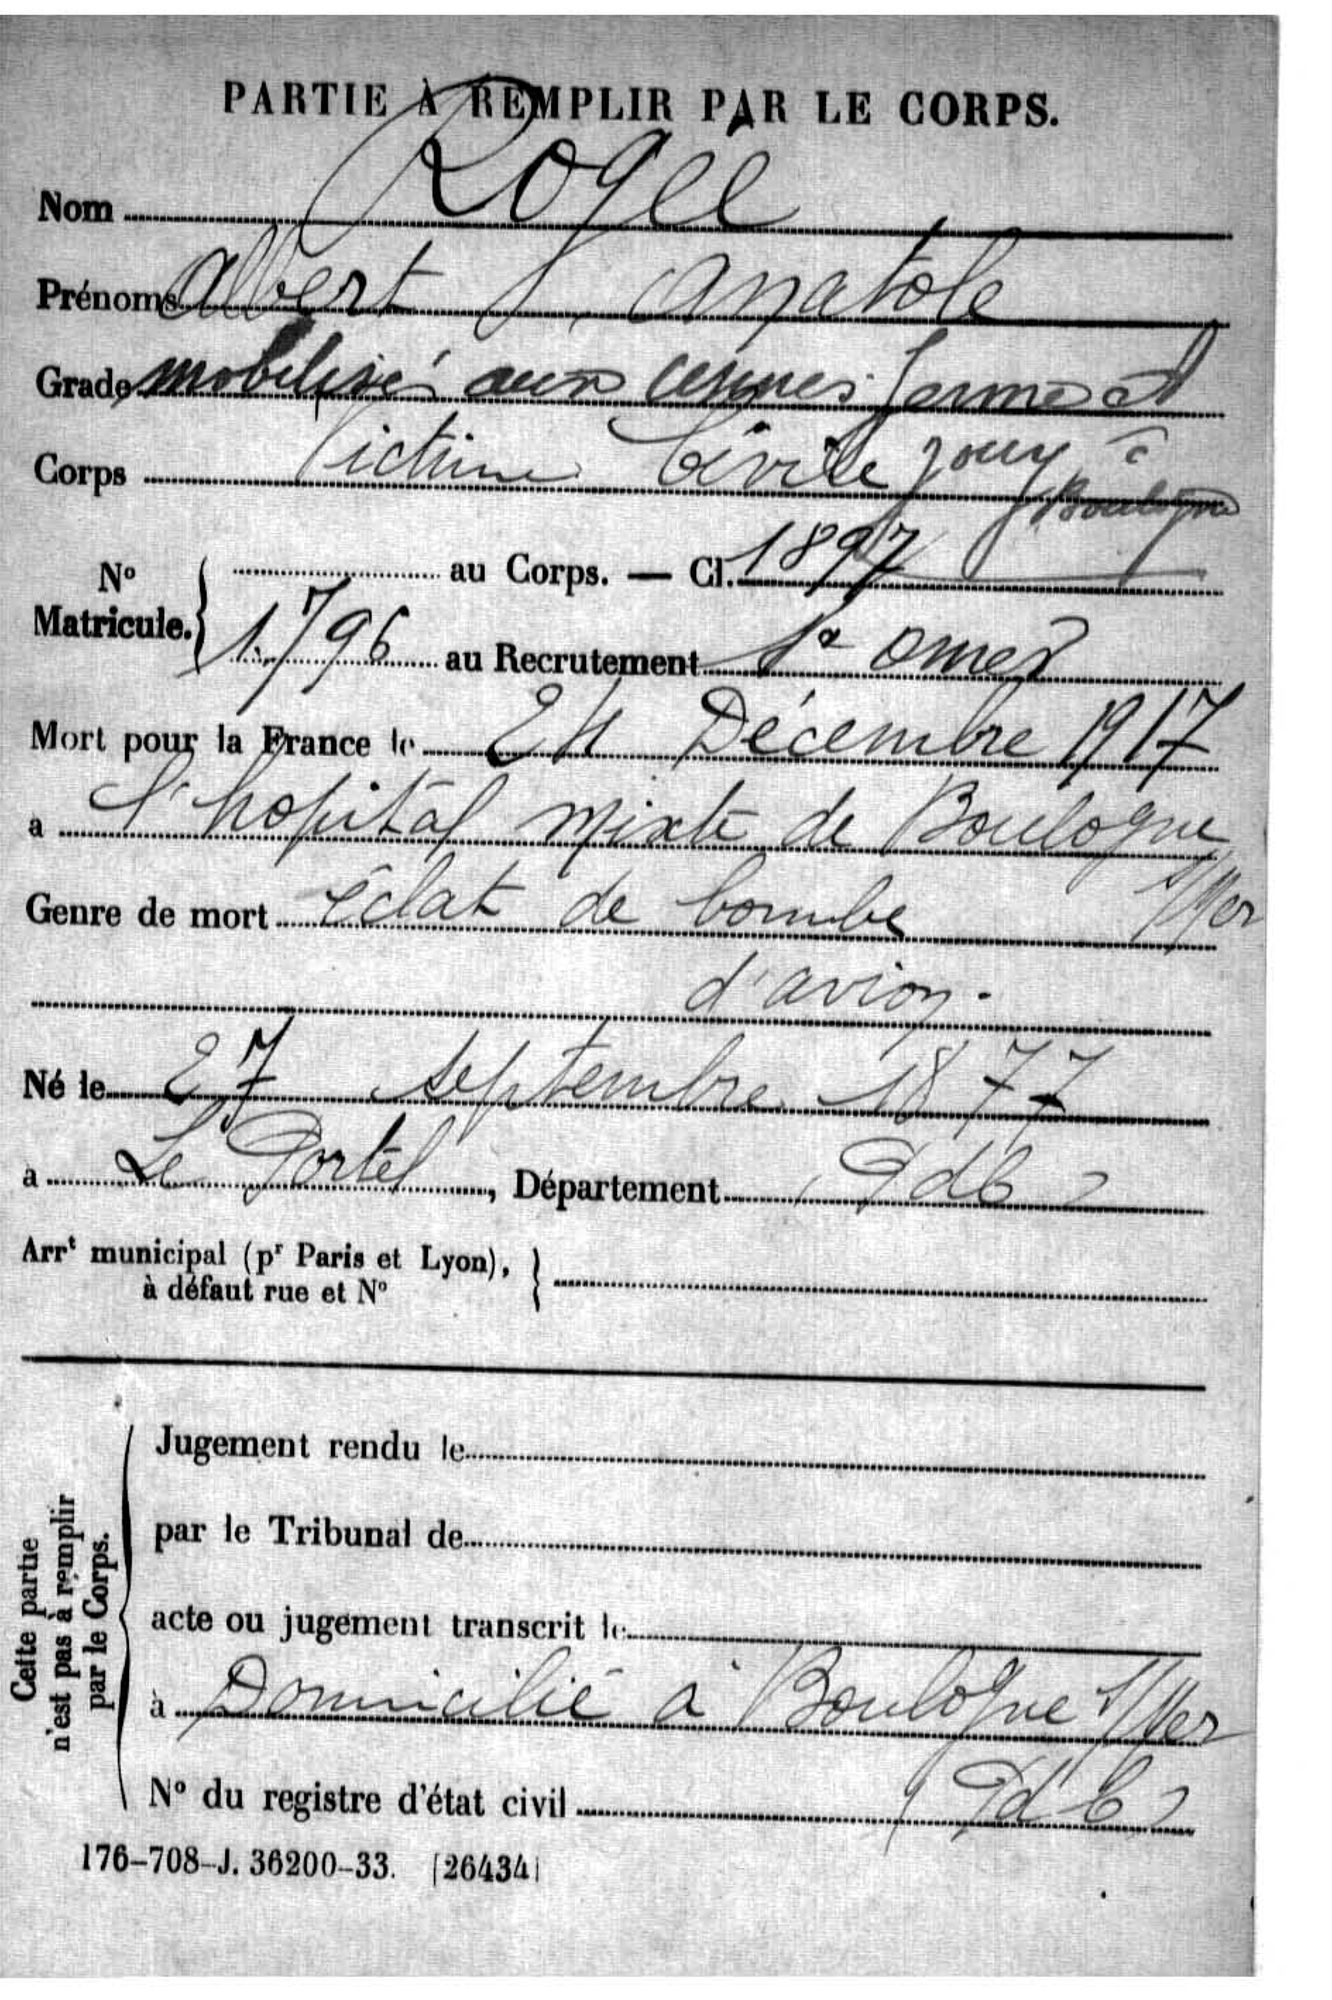 PARTIE À REMPLIR PAR LE CORPS.
Nom Rogéé
Prénoms Albert Anatole
Grade mobilisé aux usines Jarmes et
Corps Victime Civile Jouy à
Boulogne
N° Matricule. { au Corps. — Cl. 1897
1.796 au Recrutement St Omer
Mort pour la France le 24 Décembre 1917
a l'hopital mixte de Boulogne
s/Mer
Genre de mort éclat de bombe
d'avion.
Né le 27 septembre 1877
à Le Portel, Département PdC
Arrt municipal (pr Paris et Lyon), }
à défaut rue et N°
Cette partie n'est pas à remplir par le Corps.
Jugement rendu le
par le Tribunal de
acte ou jugement transcrit le
à Domicilié à Boulogne s/Mer
N° du registre d'état civil (PdC)
176-708-J. 36200-33. [26434]